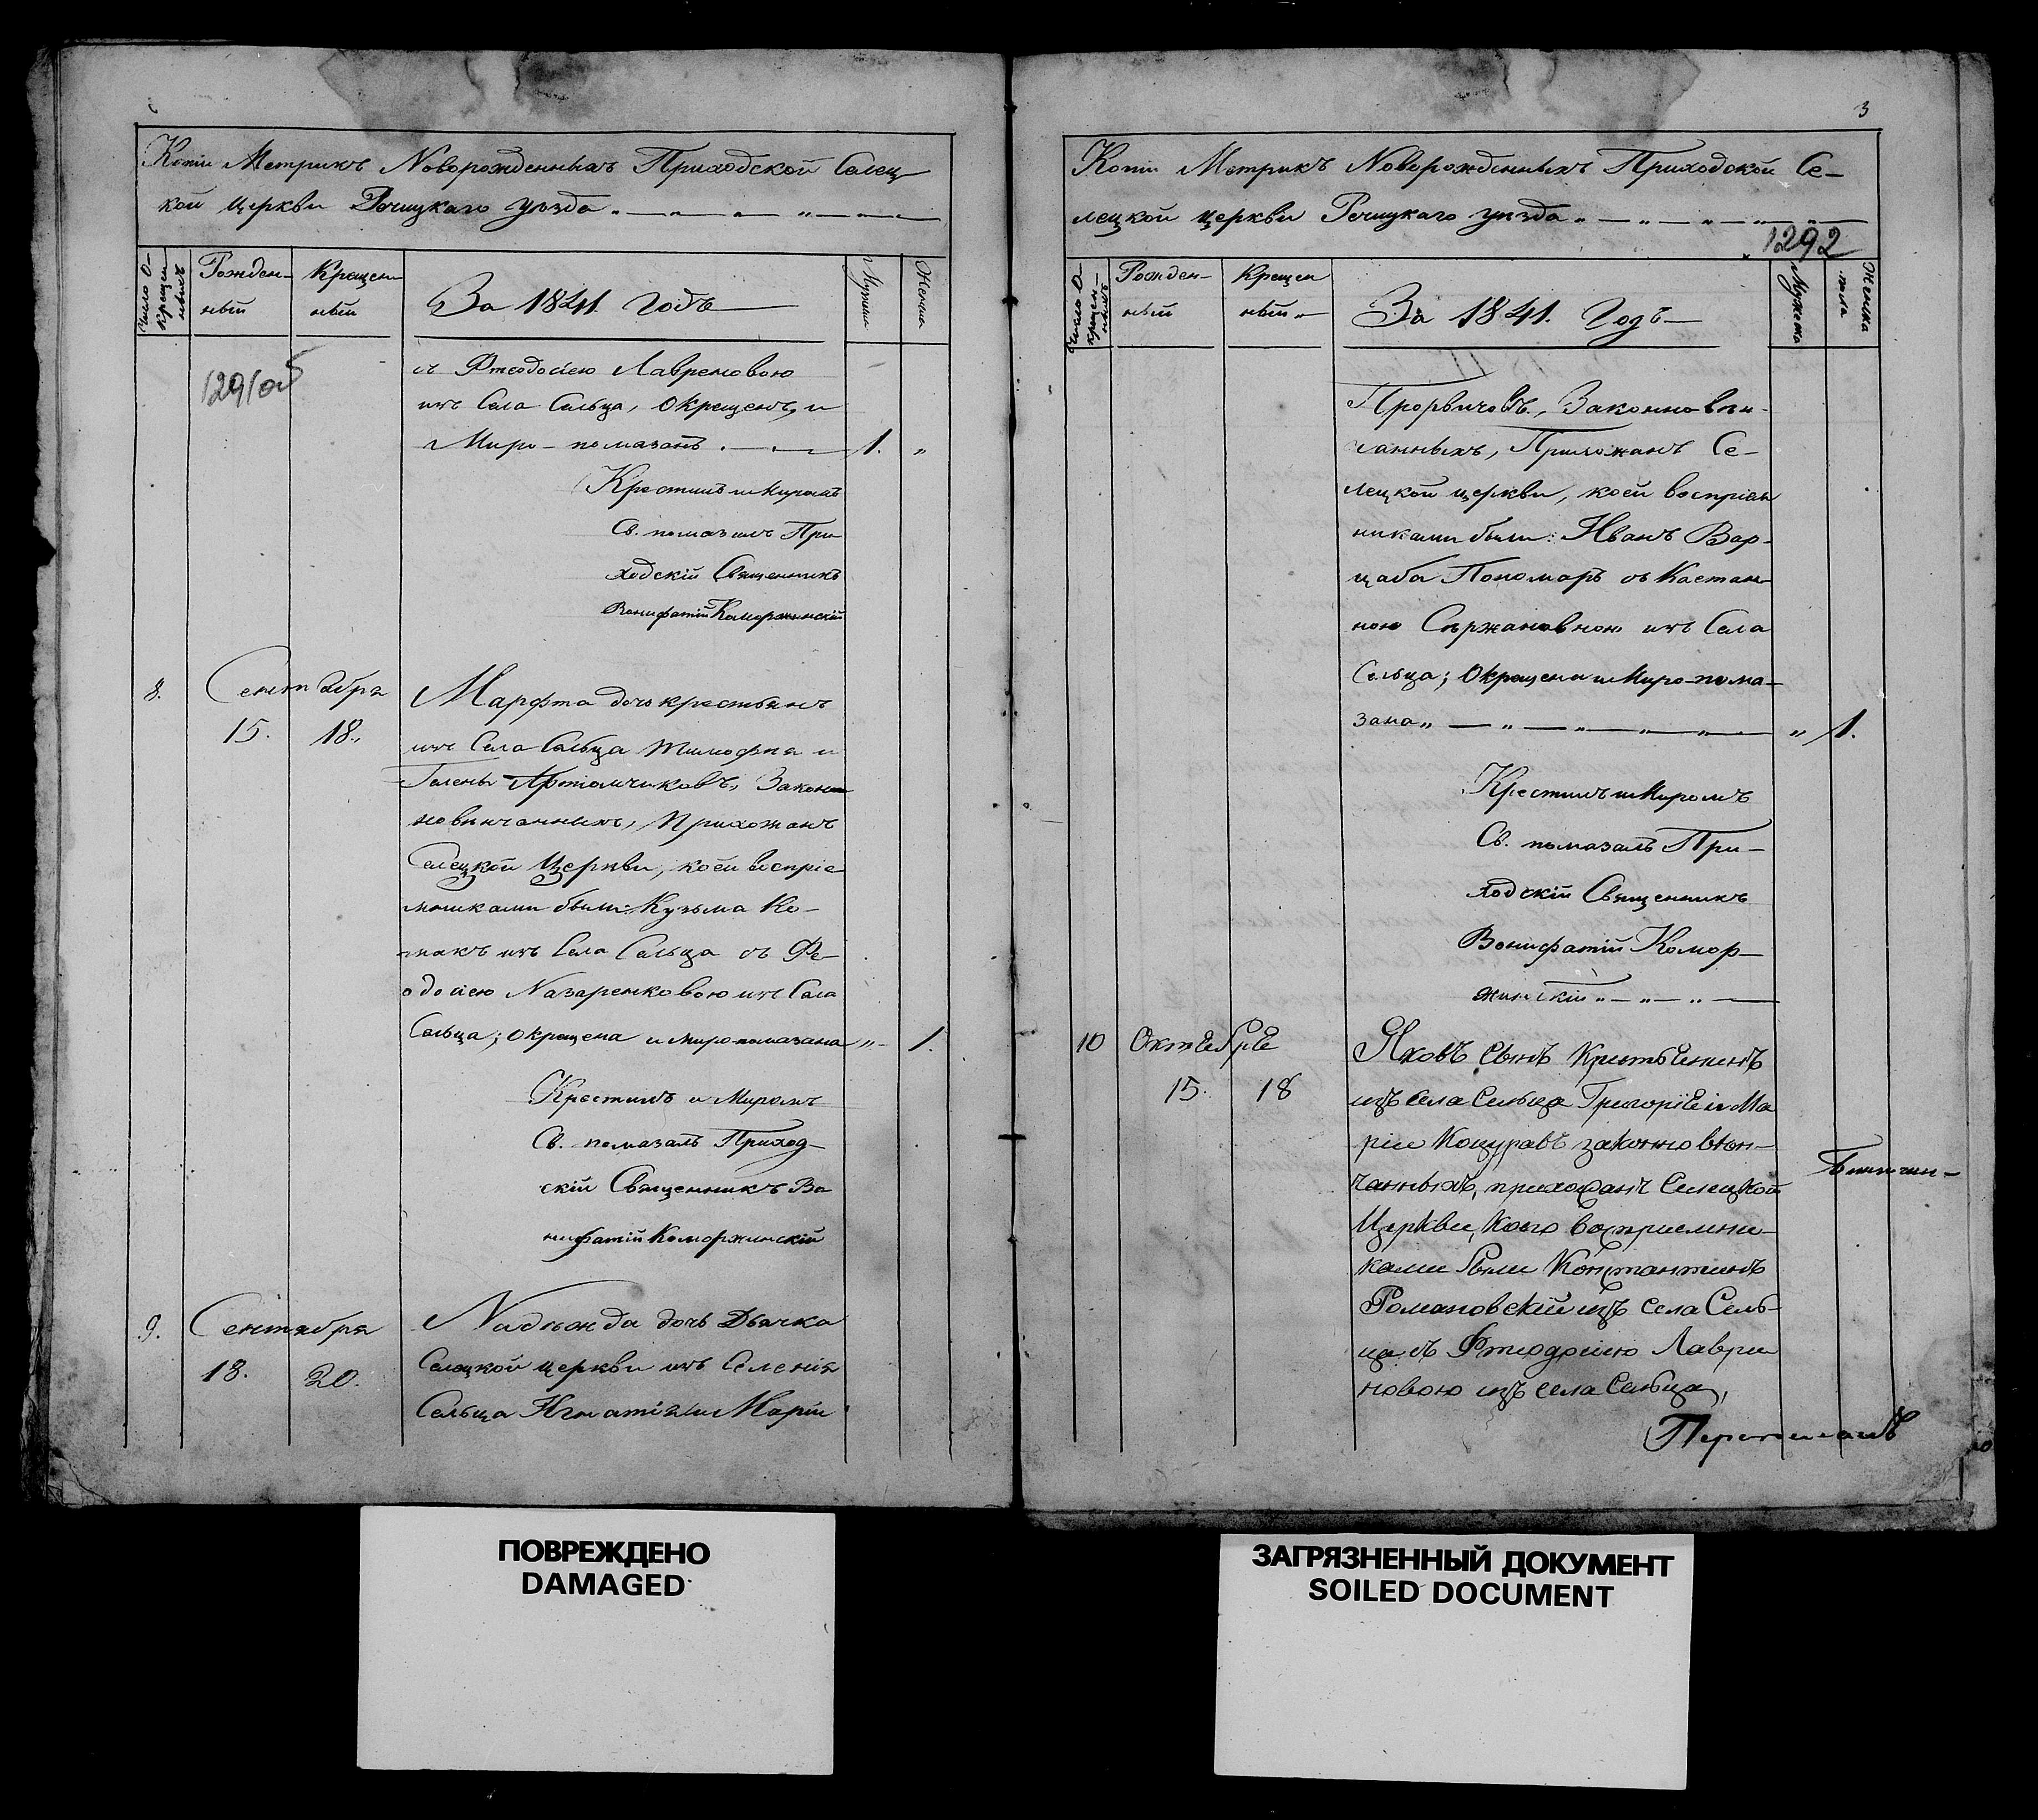 Копіи Метрикъ Новорожденныхъ Приходской Селец
кой Церкви Речицкаго уѣзда
Число О-
крещен
ныхъ
Рожден-
ный
Крещен
ный
За 1841. Годъ
Мужеск
Женск
1291об
съ Фтеодосіею Лавреновою
изъ Села Сельца, Окрещенъ, и
Миро-помазанъ. 1. „
Крестилъ и Миромъ
Св. помазалъ При
ходскій Священникъ
Вонифатій Коморжинскій
8. Сентября
15. 18.
Марфта дочь крестьянъ
изъ Села Сельца Тимофѣя и
Гелены Артіомчиковъ, Законно
новѣнчанныхъ, Прихожанъ
Селецкой Церкви, коей воспріе
мниками были: Кузьма Ко-
изъ Села Сельца съ Фе-
одосіею Назаренковою изъ Села
Сельца; окрещена и миро-помазана „ 1.
Крестилъ и Миромъ
Св. помазалъ Приход-
скій Священникъ Во
нифатій Коморжинскій
9. Сентября
18. 20.
Надѣжда дочь Дьячка
Селецкой церкви изъ Селенія
Сельца Игнатія и Маріи
3
Копіи Метрикъ Новорожденныхъ Приходской Се-
лецкой Церкви Речицкаго уѣзда
1292
Число О-
крещен-
ныхъ
Рожден-
ный
Крещен
ный
За 1841. Годъ
Мужеска
Женска
пола
Прорвичовъ, Законновѣн-
чанныхъ, Прихожанъ Се-
лецкой церкви, коей воспріем
никами были: Иванъ Вар-
щаба Пономарь съ Костан-
ною Сѣржановною изъ Села
Сельца; Окрещена и Миро-пома-
зана „ „ 1.
Крестилъ и Миромъ
Св. помазалъ При-
ходскій Священникъ
Вонифатій Комор-
жинскій
10 Октебре
15. 18
Яковъ сынъ Крестьенинъ
изъ села Сельца Григоріе и Ма
ріи Коцуравъ законно вѣн-
чанныхъ, прихожанъ Селецкой
Церкви, Коего восприемни-
ками были Константинъ
Романовскій изъ села Сель-
ца съ Фтеодосіею Лаври
новою изъ села Сельца,
ПОВРЕЖДЕНО
DAMAGED
ЗАГРЯЗНЕННЫЙ ДОКУМЕНТ
SOILED DOCUMENT